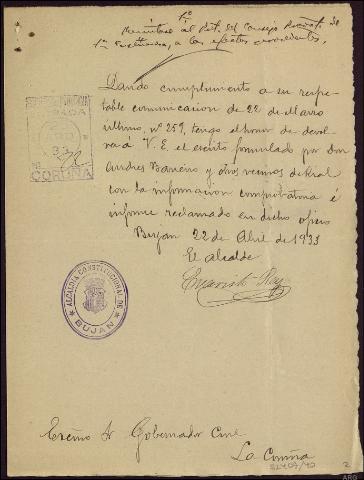 1º
Remítase al
1ª Enseñanza, a los efectos procedentes.
Dando cumplimento a su respe-
table comunicacion de 22 de Marzo
ultimo, nº 259, tengo el honor de devol-
ver á V. E. el escrito formulado por Don
Andres Barreiro y otros vecinos de Rial
con la información comprobatoria é
informe reclamado en dicho oficio
Bujan 22 de Abril de 1933
El Alcalde
ALCALDIA CONSTITUCIONAL DE
BUJAN
CORUÑA
Excmo Sr Gobernador Civil
La Coruña
2